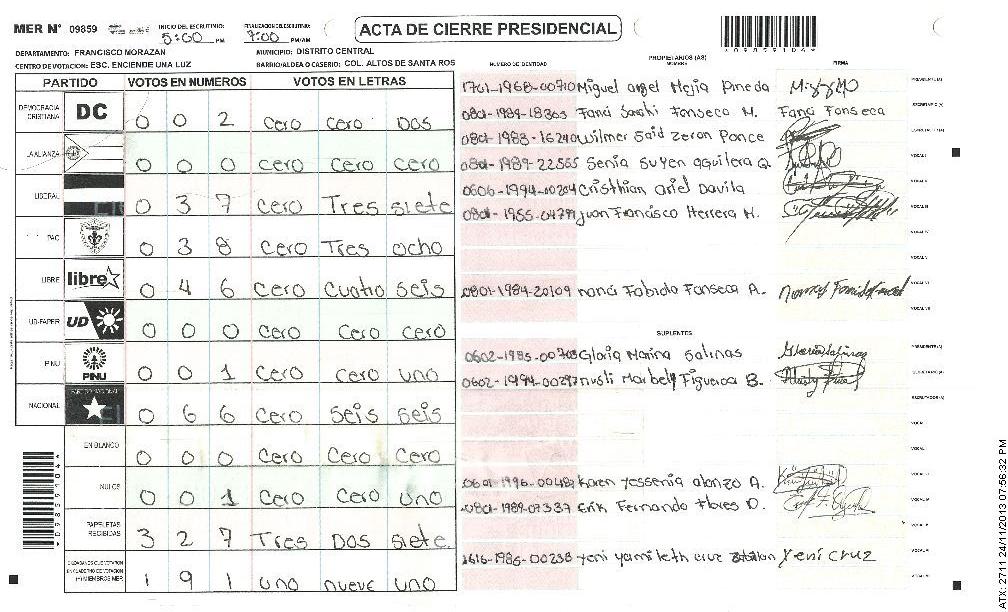 MER N° 09859 INICIO DEL ESCRUTINIO: 5:00 PM FINALIZACION DEL ESCRUTINIO: 7:00 PM/AM ACTA DE CIERRE PRESIDENCIAL *09859104*
DEPARTAMENTO: FRANCISCO MORAZAN MUNICIPIO: DISTRITO CENTRAL
CENTRO DE VOTACION: ESC. ENCIENDE UNA LUZ BARRIO/ALDEA O CASERIO: COL. ALTOS DE SANTA ROS
PARTIDO VOTOS EN NUMEROS VOTOS EN LETRAS
DEMOCRACIA CRISTIANA DC 0 0 2 cero cero Dos
LA ALIANZA 0 0 0 cero cero cero
LIBERAL 0 3 7 cero Tres siete
PAC 0 3 8 cero Tres ocho
LIBRE libre 0 4 6 cero cuatro seis
UD-FAPER UD 0 0 0 cero cero cero
PINU PINU 0 0 1 cero cero uno
NACIONAL 0 6 6 cero seis seis
EN BLANCO 0 0 0 cero cero cero
NULOS 0 0 1 cero cero uno
PAPELETAS RECIBIDAS 3 2 7 Tres Dos siete
1 9 1 uno nueve uno
NUMERO DE IDENTIDAD PROPIETARIOS (AS) NOMBRE FIRMA
1701-1968-00710 Miguel angel Mejia Pineda PRESIDENTE(A)
0801-1989-18365 Fanci Sarahi Fonseca M. Fanci Fonseca SECRETARIO(A)
0801-1983-16240 Wilmer Said Zeron Ponce ESCRUTADOR(A)
0801-1989-22565 Senia Suyen aguilera G. VOCAL I
0606-1994-00204 Cristhian ariel Davila VOCAL II
0801-1955-04799 Juan Francisco Herrera M. VOCAL III
VOCAL IV
VOCAL V
0801-1984-20109 nanci Fabiola Fonseca A. VOCAL VI
VOCAL VII
SUPLENTES
0602-1985-00703 Gloria Marina Salinas PRESIDENTE(A)
0602-1994-00297 nusli Marbely Figueroa B. SECRETARIO(A)
ESCRUTADOR(A)
VOCAL I
VOCAL II
0601-1996-00489 Karen Yessenia alonzo A. VOCAL III
0801-1989-07337 Erik Fernando Flores D. VOCAL IV
VOCAL V
1616-1986-00238 Yeni yamileth cruz Yeni cruz VOCAL VI
VOCAL VII
*09859104*
ATX: 2711 24/11/2013 07:56:32 PM